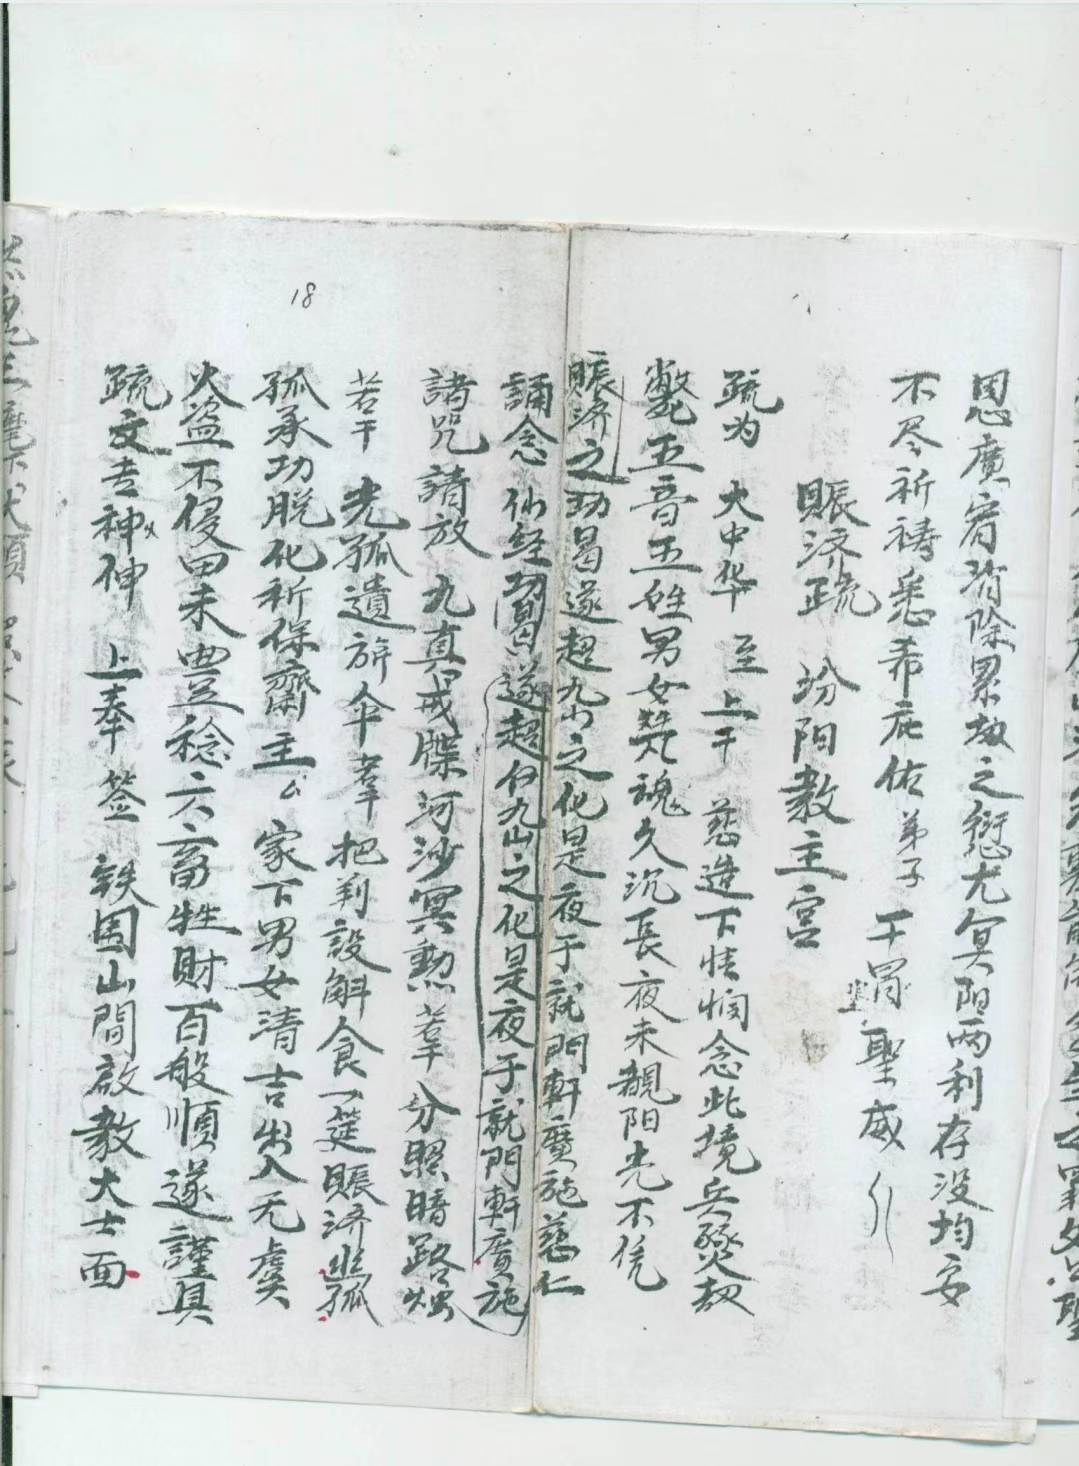 恩廣宥消除累劫之愆尤冥阳两利存没均安
不尽祈禱悉希庇佑弟子干冒聖威
賑济疏 汾阳教主宮
疏为 大中华 至上干 慈造下情悯念此境兵燹劫
斃五音五姓男女焭魂久沉長夜未覩阳光不凭
賑济之功曷遂超九山之化是夜于就門軒廣施慈仁
誦念仙经 遂超仈九山之化是夜于就門軒廣施
諸咒請放 九真戒牒河沙冥勳若干分照暗路燭
若干 光孤遺旂伞若干把判設斛食一筵賑济
孤承功脱化祈保齋主厶 家下男女清吉出入无虞
火盗不侵田禾豊稔六畜牲財百般順遂謹具
疏文专神伸 上奉 签 鉄围山間啟教大士面
18